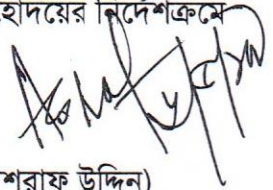 হোদয়ের নির্দেশক্রমে
শরাফ উদ্দিন)